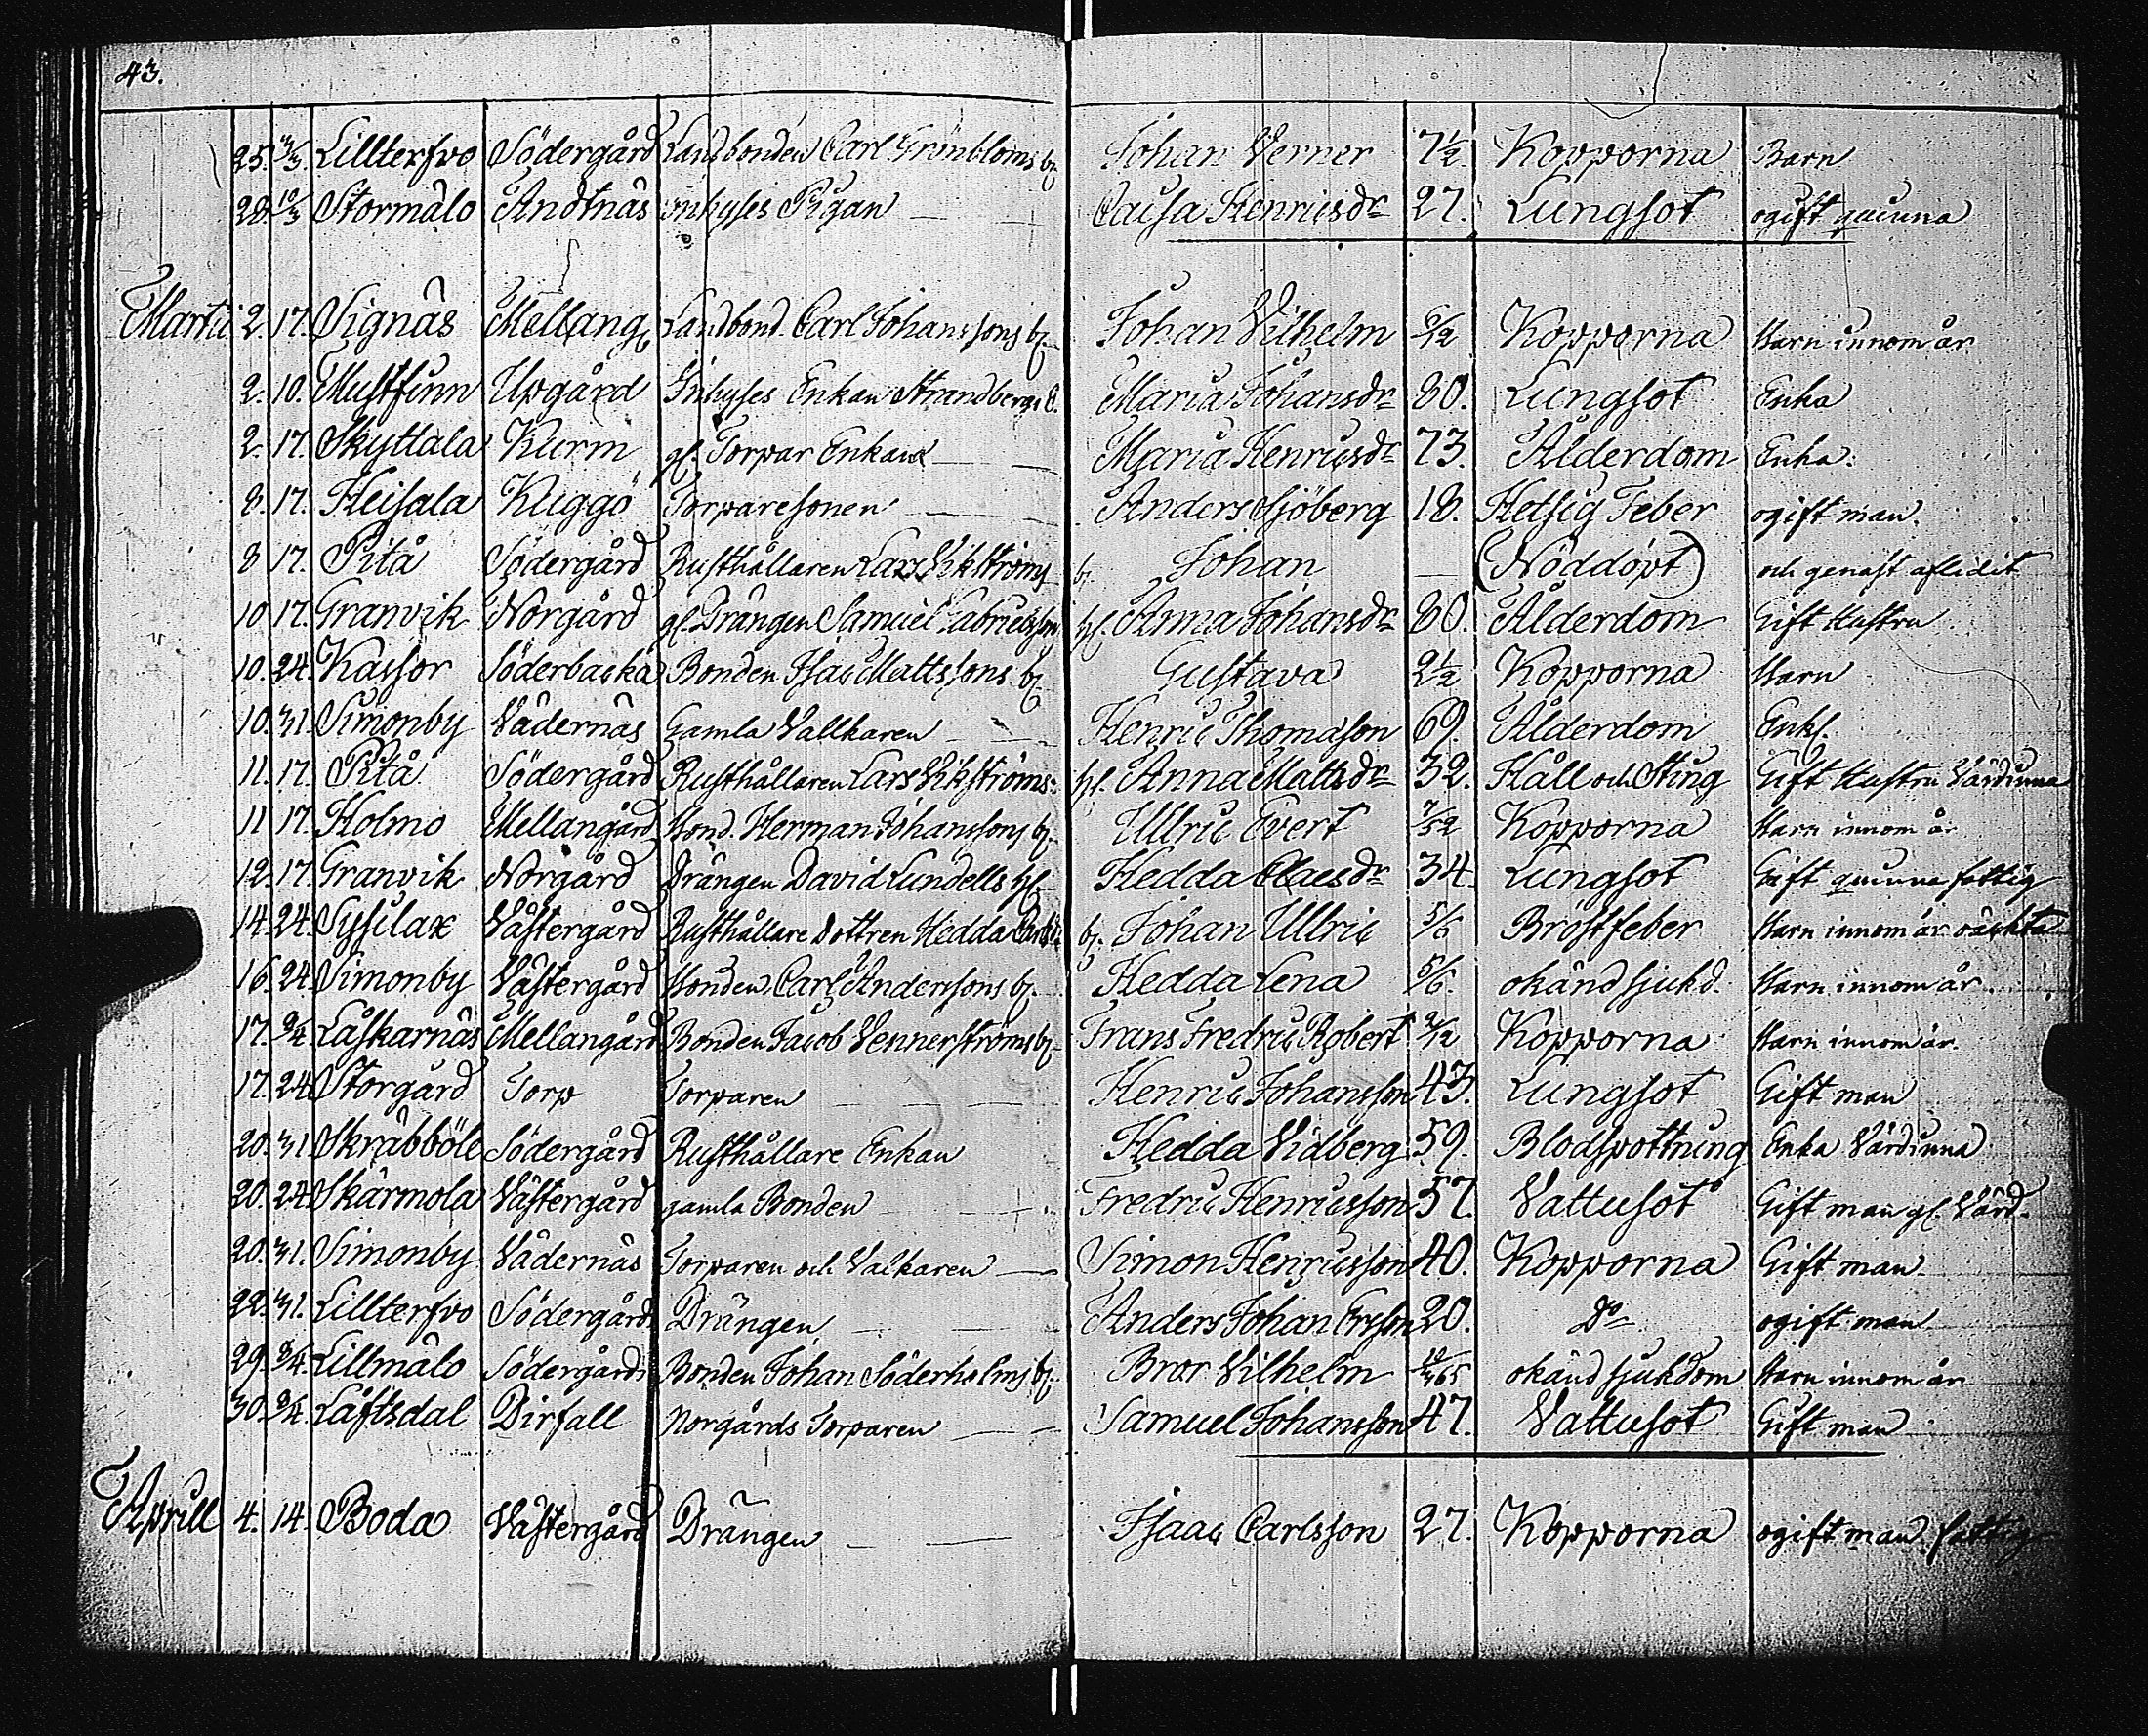 43.
25. 3/3. Lillterfvo Södergård Landbonden Carl Grönbloms bj. Johan Verner 7½ Kopporna Barn
28. 10/3 Stormälö Andtnäs inhyses Pigan Caisa Henricsdr 27. Lungsot ogift quinna
Martii 2. 17. Signäs Mellang. Landbond. Carl Johanssons bj. Johan Vilhelm Kopporna Barn innom år
2. 10. Mustfinn Upgård Inhyses Enkan Strandbergs Maria Johansdr 80. Lungsot Enka
2. 17. Skyttala Kurm gl. Torpar Enkan Maria Henricsdr 73. Ålderdom Enka.
8. 17. Heisala Kuggö Torparesonen Anders Sjöberg 18. Hetsig Feber ogift man.
8 17. Pitå Södergård Rusthållaren Lars Vikströms bj. Johan — (Nöddöpt) och genast aflidit
10 17. Granvik Norgård gl. Drängen Samuel Gabrielsson hl. Anna Johansdr 80. Ålderdom Gift Hustru
10. 24. Kassor Söderbacka Bonden Isac Mattssons bj. Gustava 2½ Kopporna Barn
10. 31. Simonby Vädernäs Gamla Vallkaren Henric Thomasson 69. Ålderdom Enkl.
11. 17. Pitå Södergård Rusthållaren Lars Vikströms hl. Anna Mattsdr 32. Håll och Sting Gift Hustru Värdinna
11 17. Holmo Mellangård Bond. Herman Johanssons bj. Ullric Evert 7/52 Kopporna Barn innom år
12. 17. Granvik Norgård Drängen David Lundells hl. Hedda Claesdr 34. Lungsot Gift quinna fattig
14. 24. Sysilax Västergård Rusthållare Dottren Hedda bj. Johan Ullric 5/6 Bröstfeber Barn innom år oäckta
16. 24. Simonby Västergård Bonden Carl Anderssons bj. Hedda Lena 5/6. okänd sjukd. Barn innom år
17. Låskarnäs Mellangård Bonden Jacob Vennerströms bj. Frans Fredric Robert Kopporna Barn innom år.
17. 24 Storgård Torp Torparen Henric Johansson 43. Lungsot Gift man
20. 31. Skräbböle Södergård Rusthållare Enkan Hedda Vidberg 59. Blodspottning Enka Värdinna
20. 24. Skärmola Västergård gamla Bonden Fredric Henricsson 57. Vattusot Gift man gl. Värd.
20. 31. Simonby Vädernäs Torparen och Valkaren Simon Henricsson 40. Kopporna Gift man
22. 31. Lillterfvo Södergård Drängen Anders Johan Ersson 20. Do ogift man
29. Lillmälö Södergård Bonden Johan Söderholms bj. Bror Vilhelm okänd sjukdom Barn innom år
30. Låftsdal Dirfall Norgårds Torparen Samuel Johansson 47. Vattusot Gift man
Aprill 4. 14. Boda Västergård Drängen Isaac Carlsson 27. Kopporna ogift man. fattig